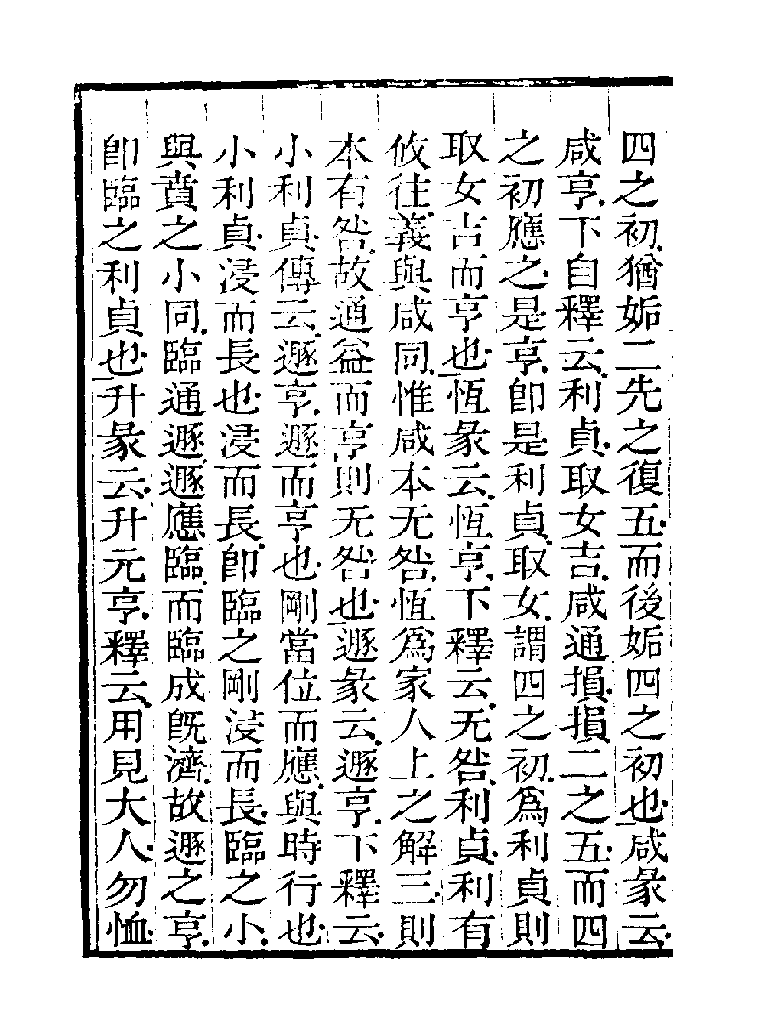 四之初猶姤二先之復五而後姤四之初也咸彖云
咸亨下自釋云利貞取女吉咸通損損二之五而四
之初應之是亨卽是利貞取女謂四之初爲利貞則
取女吉而亨也恆彖云恆亨下釋云无咎利貞利有
攸往義與咸同惟咸本无咎恆爲家人上之解三則
本有咎故通益而亨則无咎也遯彖云遯亨下釋云
小利貞傳云遯亨遯而亨也剛當位而應與時行也
小利貞浸而長也浸而長卽臨之剛浸而長臨之小
與賁之小同臨通遯遯應臨而臨成旣濟故遯之亨
卽臨之利貞也升彖云升元亨釋云用見大人勿恤